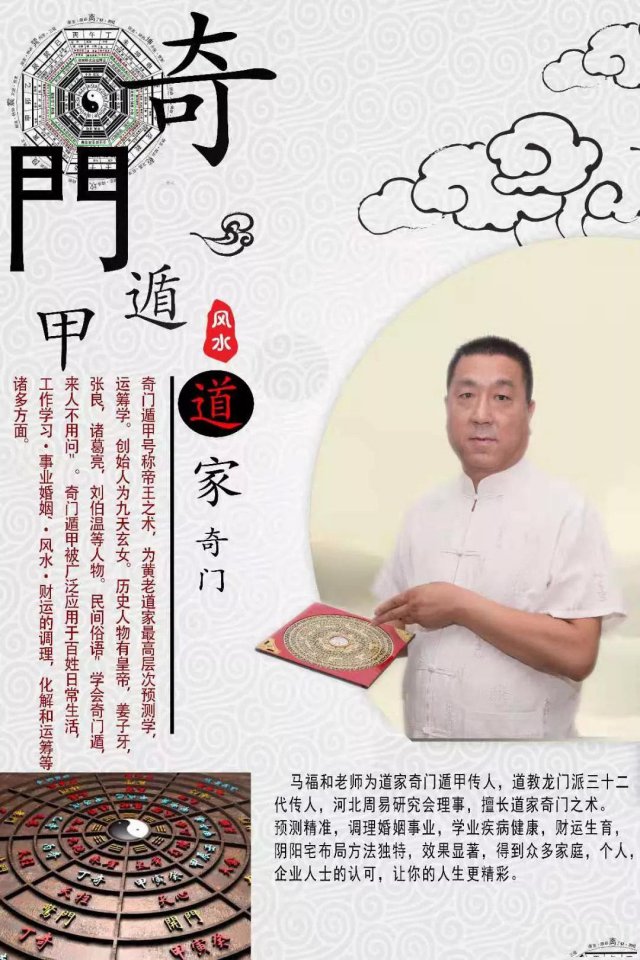 奇
門
遁
甲
风水
道
家
奇门
奇门遁甲号称帝王之术，为黄老道家最高层次预测学，
运筹学。创始人为九天玄女。历史人物有皇帝，姜子牙，
张良，诸葛亮，刘伯温等人物。民间俗语“学会奇门遁，
来人不用问”。奇门遁甲被广泛应用于百姓日常生活，
工作学习·事业婚姻、·风水·财运的调理，化解和运筹等
诸多方面。
马福和老师为道家奇门遁甲传人，道教龙门派三十二
代传人，河北周易研究会理事，擅长道家奇门之术。
预测精准，调理婚姻事业，学业疾病健康，财运生育，
阴阳宅布局方法独特，效果显著，得到众多家庭，个人，
企业人士的认可，让你的人生更精彩。
開門
丁奇
甲寅癸